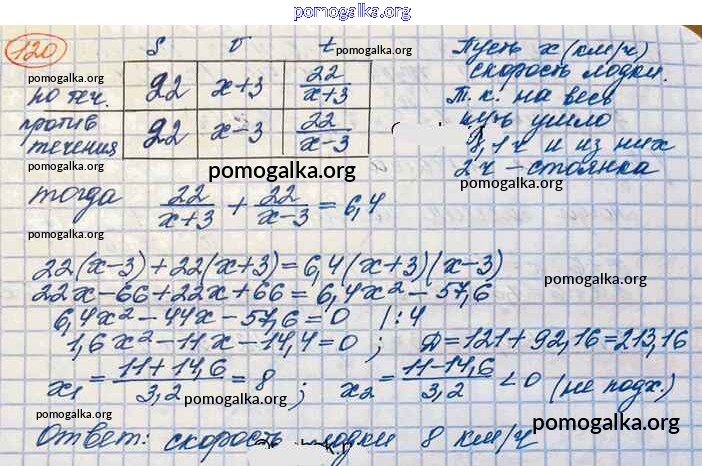 pomogalka.org
120
S v t
pomogalka.org
по теч. 22 x+3 22/(x+3)
pomogalka.org
против течения 22 x-3 22/(x-3)
pomogalka.org
Пусть x (км/ч)
скорость лодки.
pomogalka.org
Т.к. на весь
путь ушло
и из них
2 ч - стоянка
pomogalka.org
pomogalka.org
тогда 22/(x+3) + 22/(x-3) = 6,4
pomogalka.org
22(x-3)+22(x+3)=6,4(x+3)(x-3)
pomogalka.org
22x-66+22x+66=6,4x²-57,6
6,4x²-44x-57,6=0 |:4
1,6x²-11x-14,4=0; Д=121+92,16=213,16
x₁=(11+14,6)/3,2=8; x₂=(11-14,6)/3,2<0 (не подх.)
pomogalka.org
pomogalka.org
Ответ: скорость лодки 8 км/ч